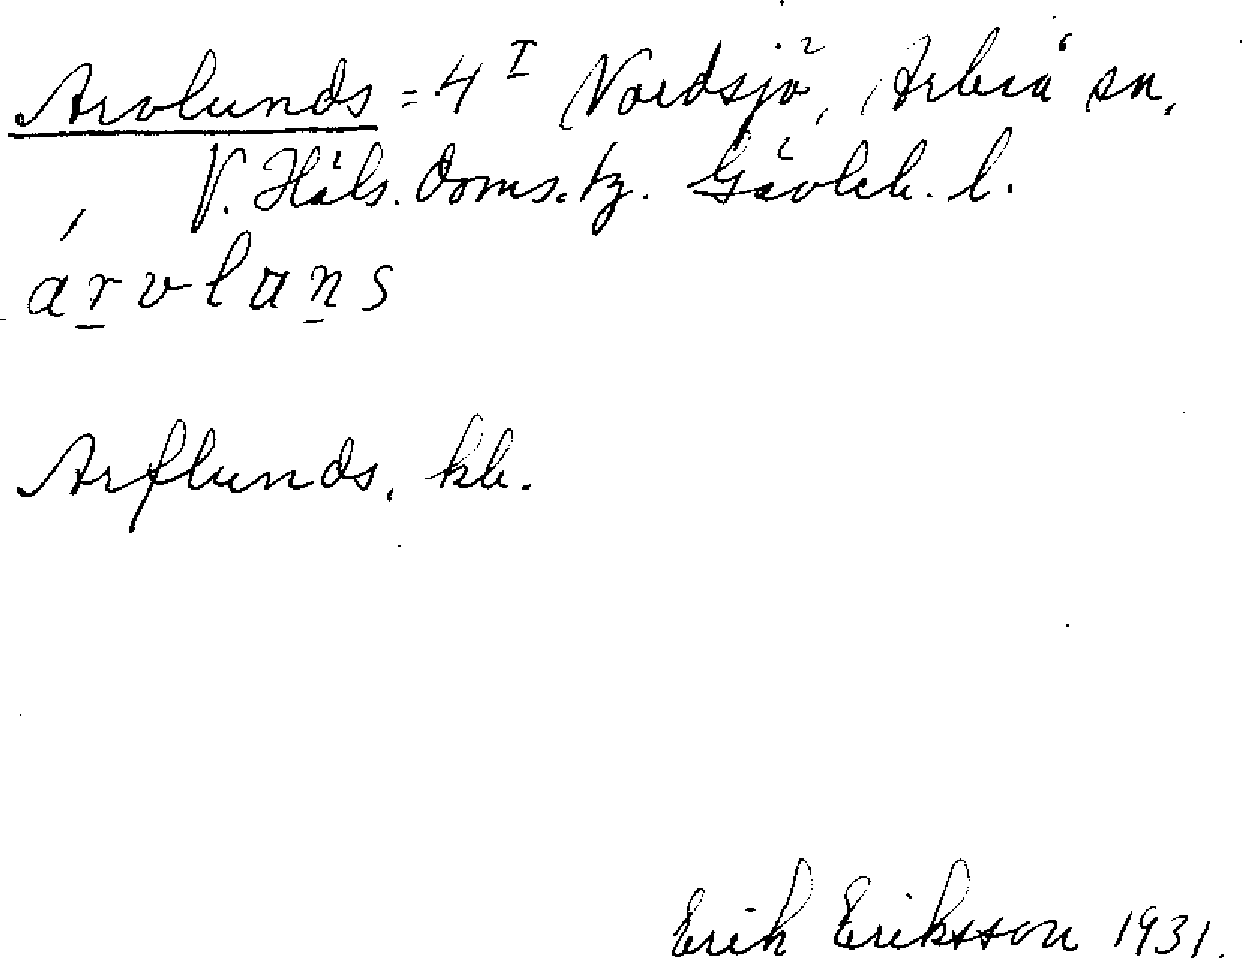 Arvlunds = 4 I Nordsjö, Arbrå sn,
V. Häls. Doms. tg. Gävleb. l.
árvlans
Arflunds, kb.
Erik Eriksson 1931.